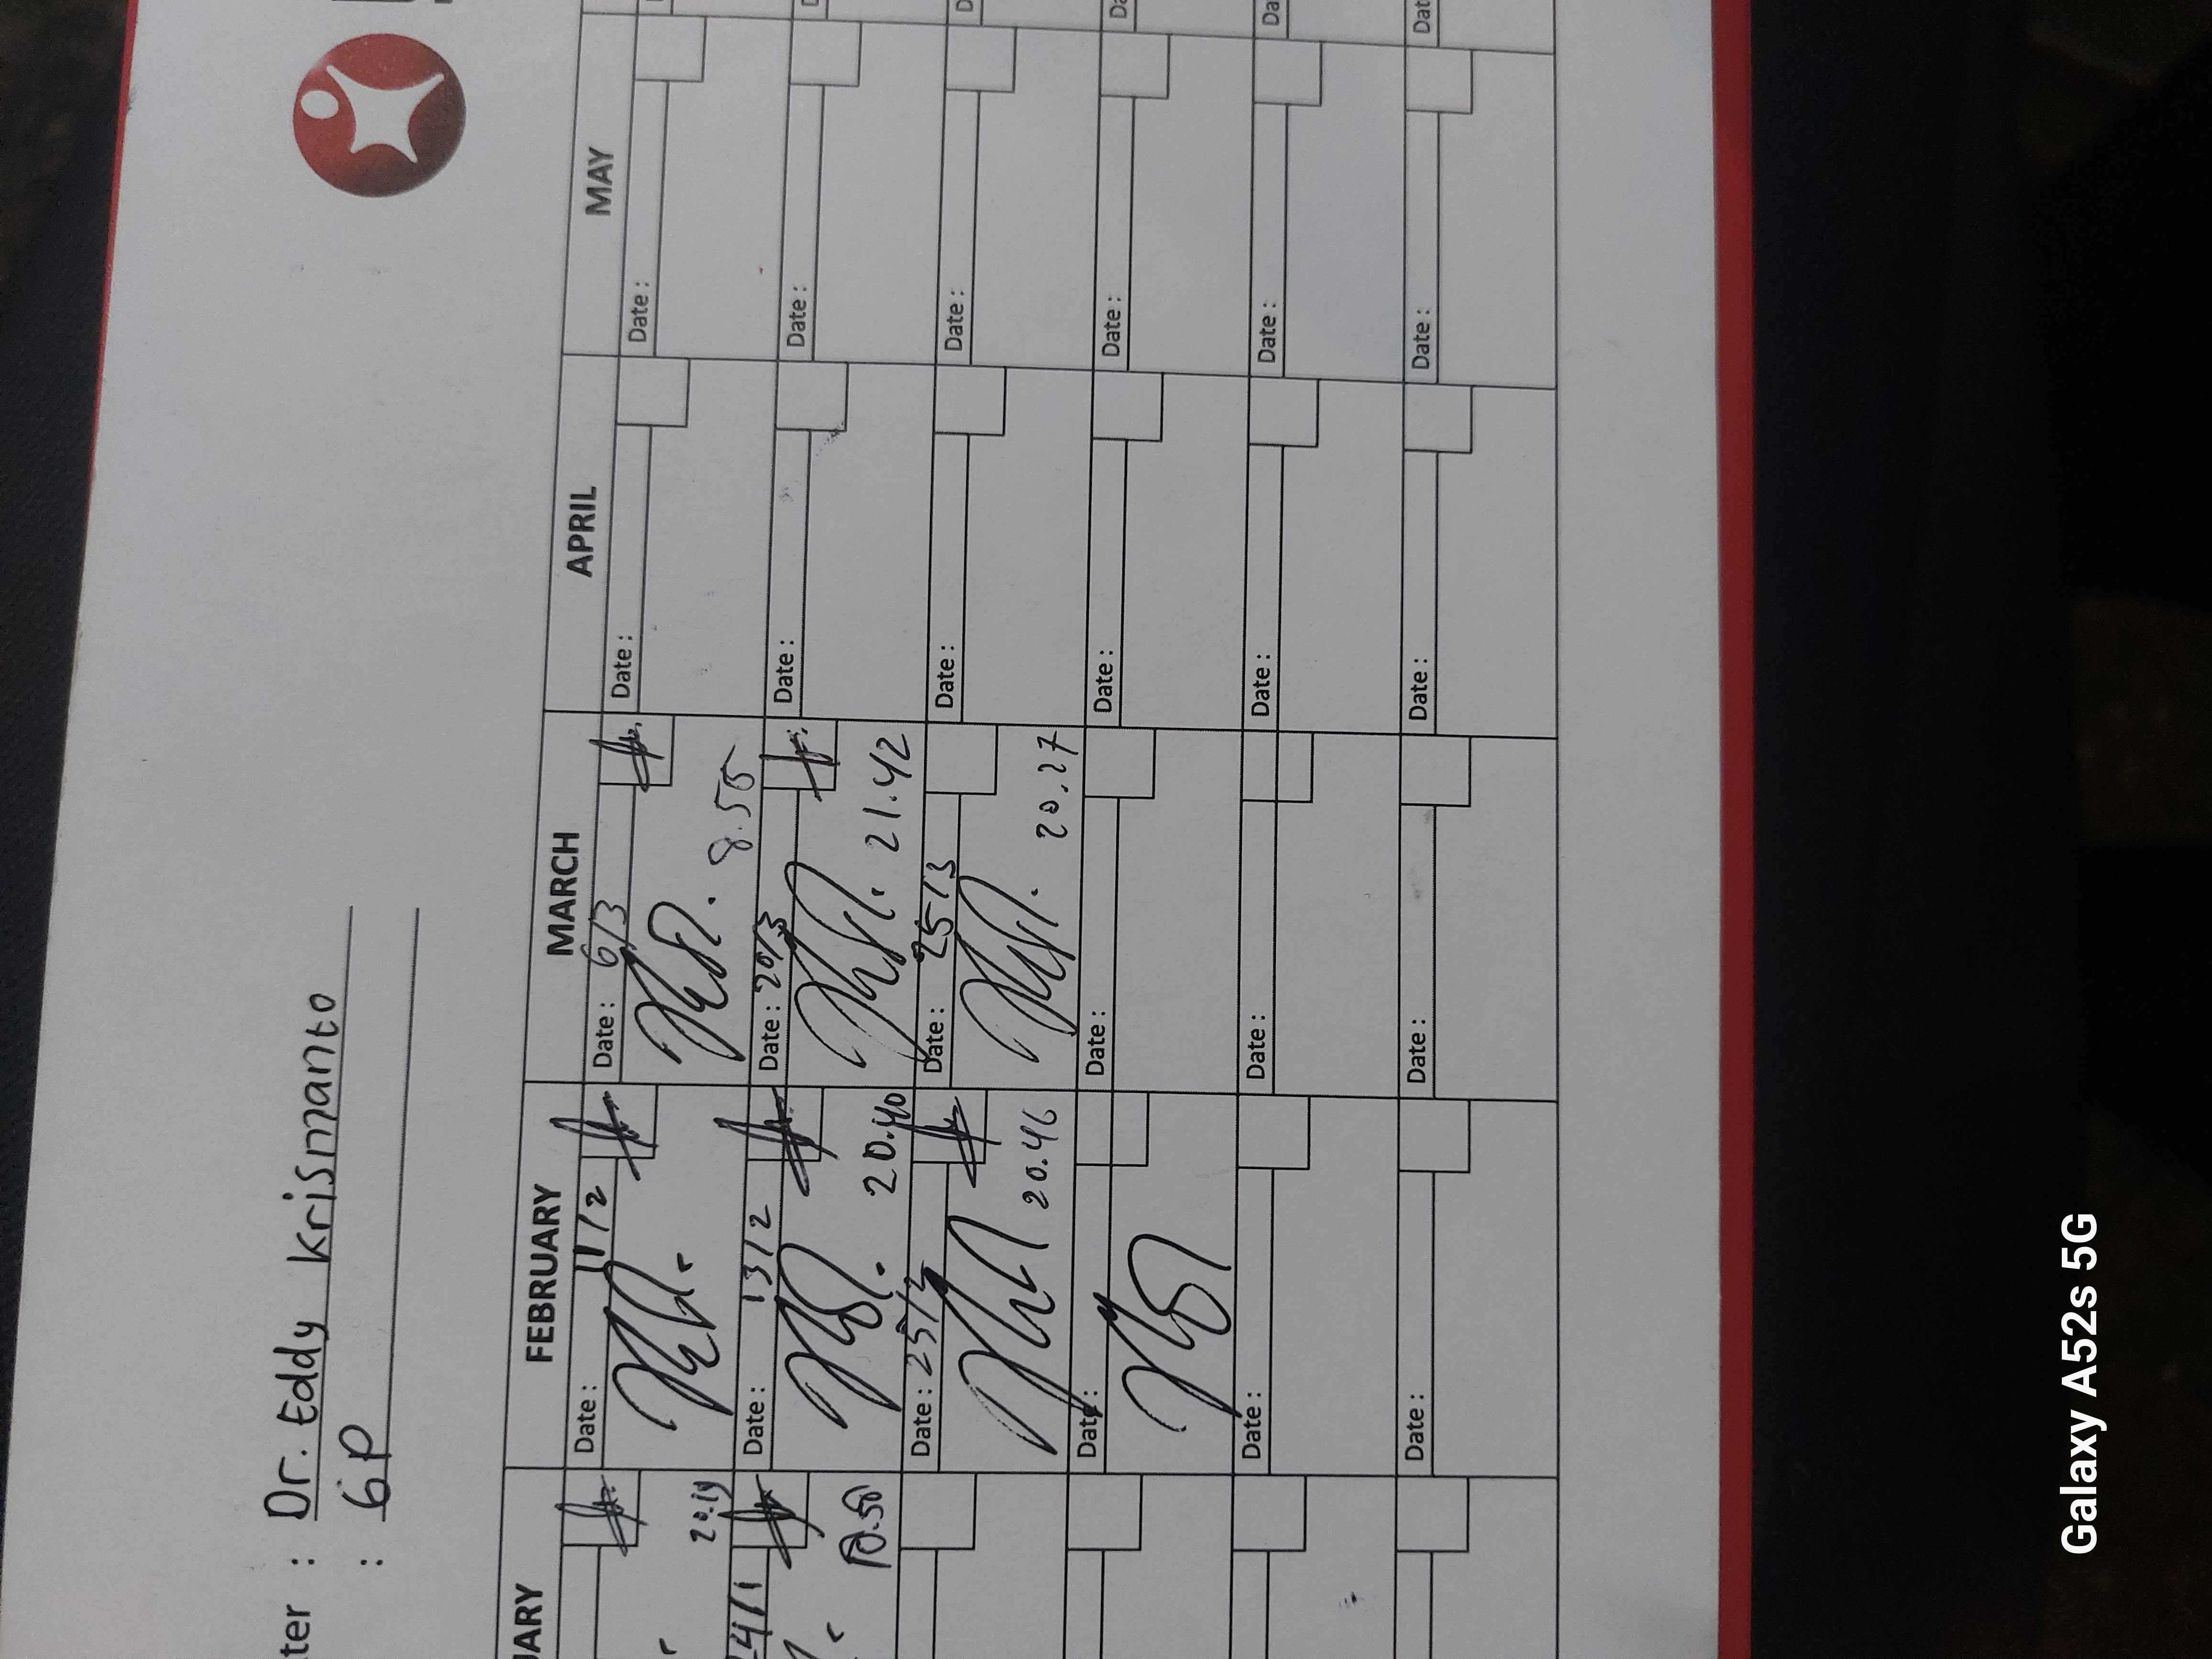 ter : Dr. Eddy Krismanto
: GP
UARY FEBRUARY MARCH APRIL MAY
Date : 11/2 Date : 6/3 Date : Date :
20.19 8.55
24/1 Date : 13/2 Date : 20/3 Date : Date :
20.40 21.42
Date : 25/2 Date : 25/3 Date : Date :
20.46 20.27
Date : Date : Date : Date :
Date : Date : Date : Date :
Date : Date : Date : Date :
Galaxy A52s 5G